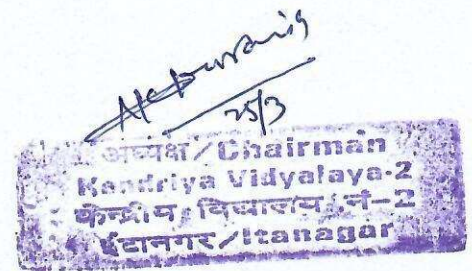 25/3
अध्यक्ष/Chairman
Kendriya Vidyalaya-2
केन्द्रीय विद्यालय नं-2
ईटानगर/Itanagar